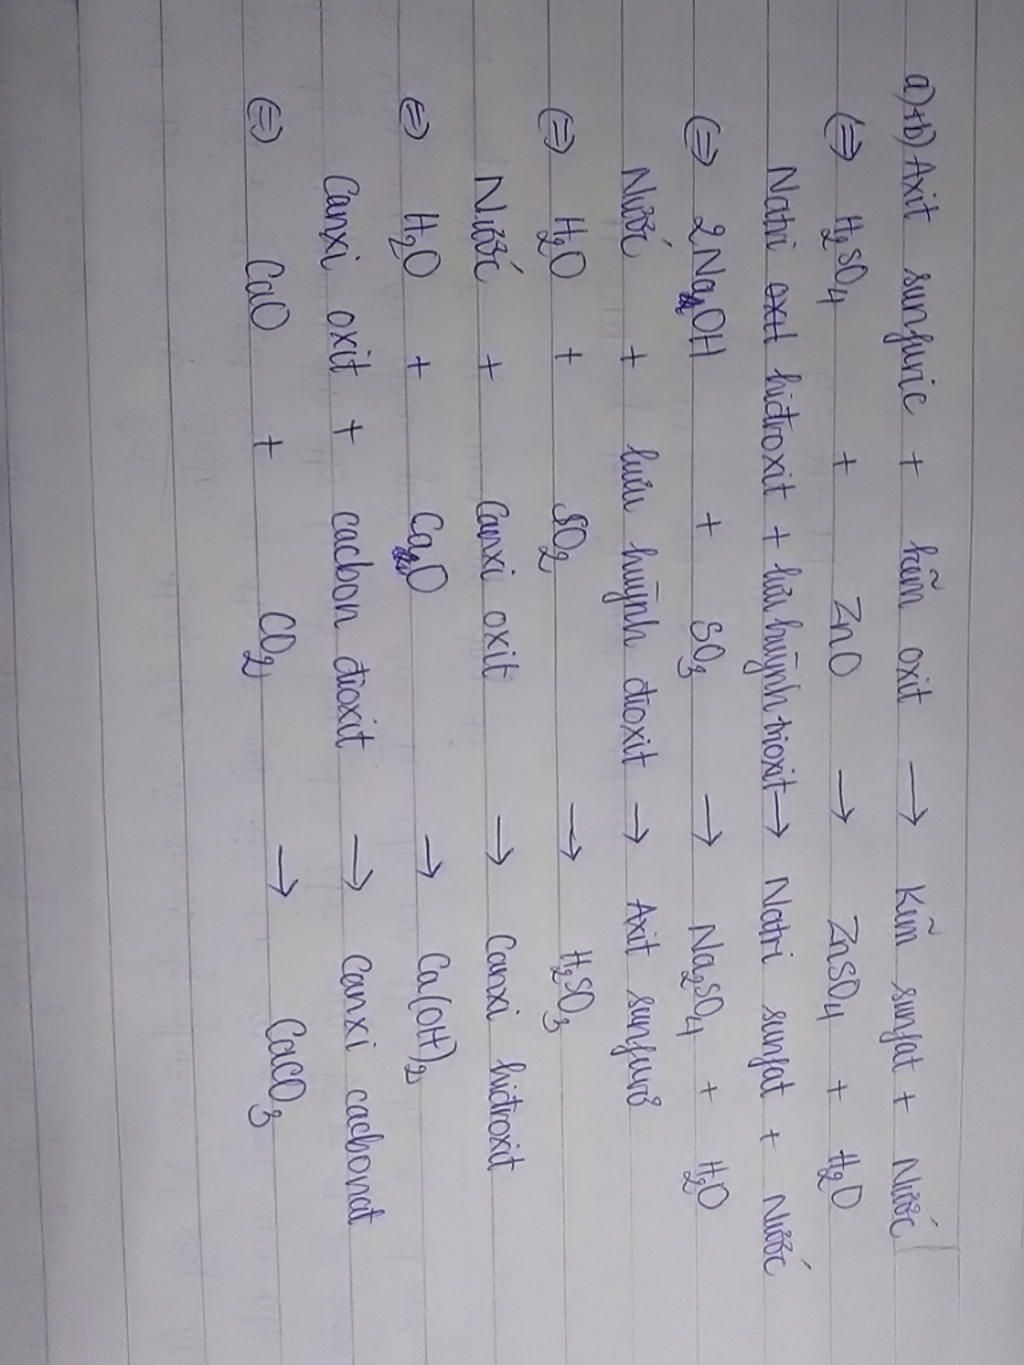 a)+b) Axit sunfuric + kẽm oxit → Kẽm sunfat + Nước
(=) H₂SO₄ + ZnO → ZnSO₄ + H₂O
Natri hiđroxit + lưu huỳnh trioxit → Natri sunfat + Nước
(=) 2NaOH + SO₃ → Na₂SO₄ + H₂O
Nước + lưu huỳnh đioxit → Axit sunfurơ
(=) H₂O + SO₂ → H₂SO₃
Nước + Canxi oxit → Canxi hiđroxit
(=) H₂O + CaO → Ca(OH)₂
Canxi oxit + cacbon đioxit → Canxi cacbonat
(=) CaO + CO₂ → CaCO₃